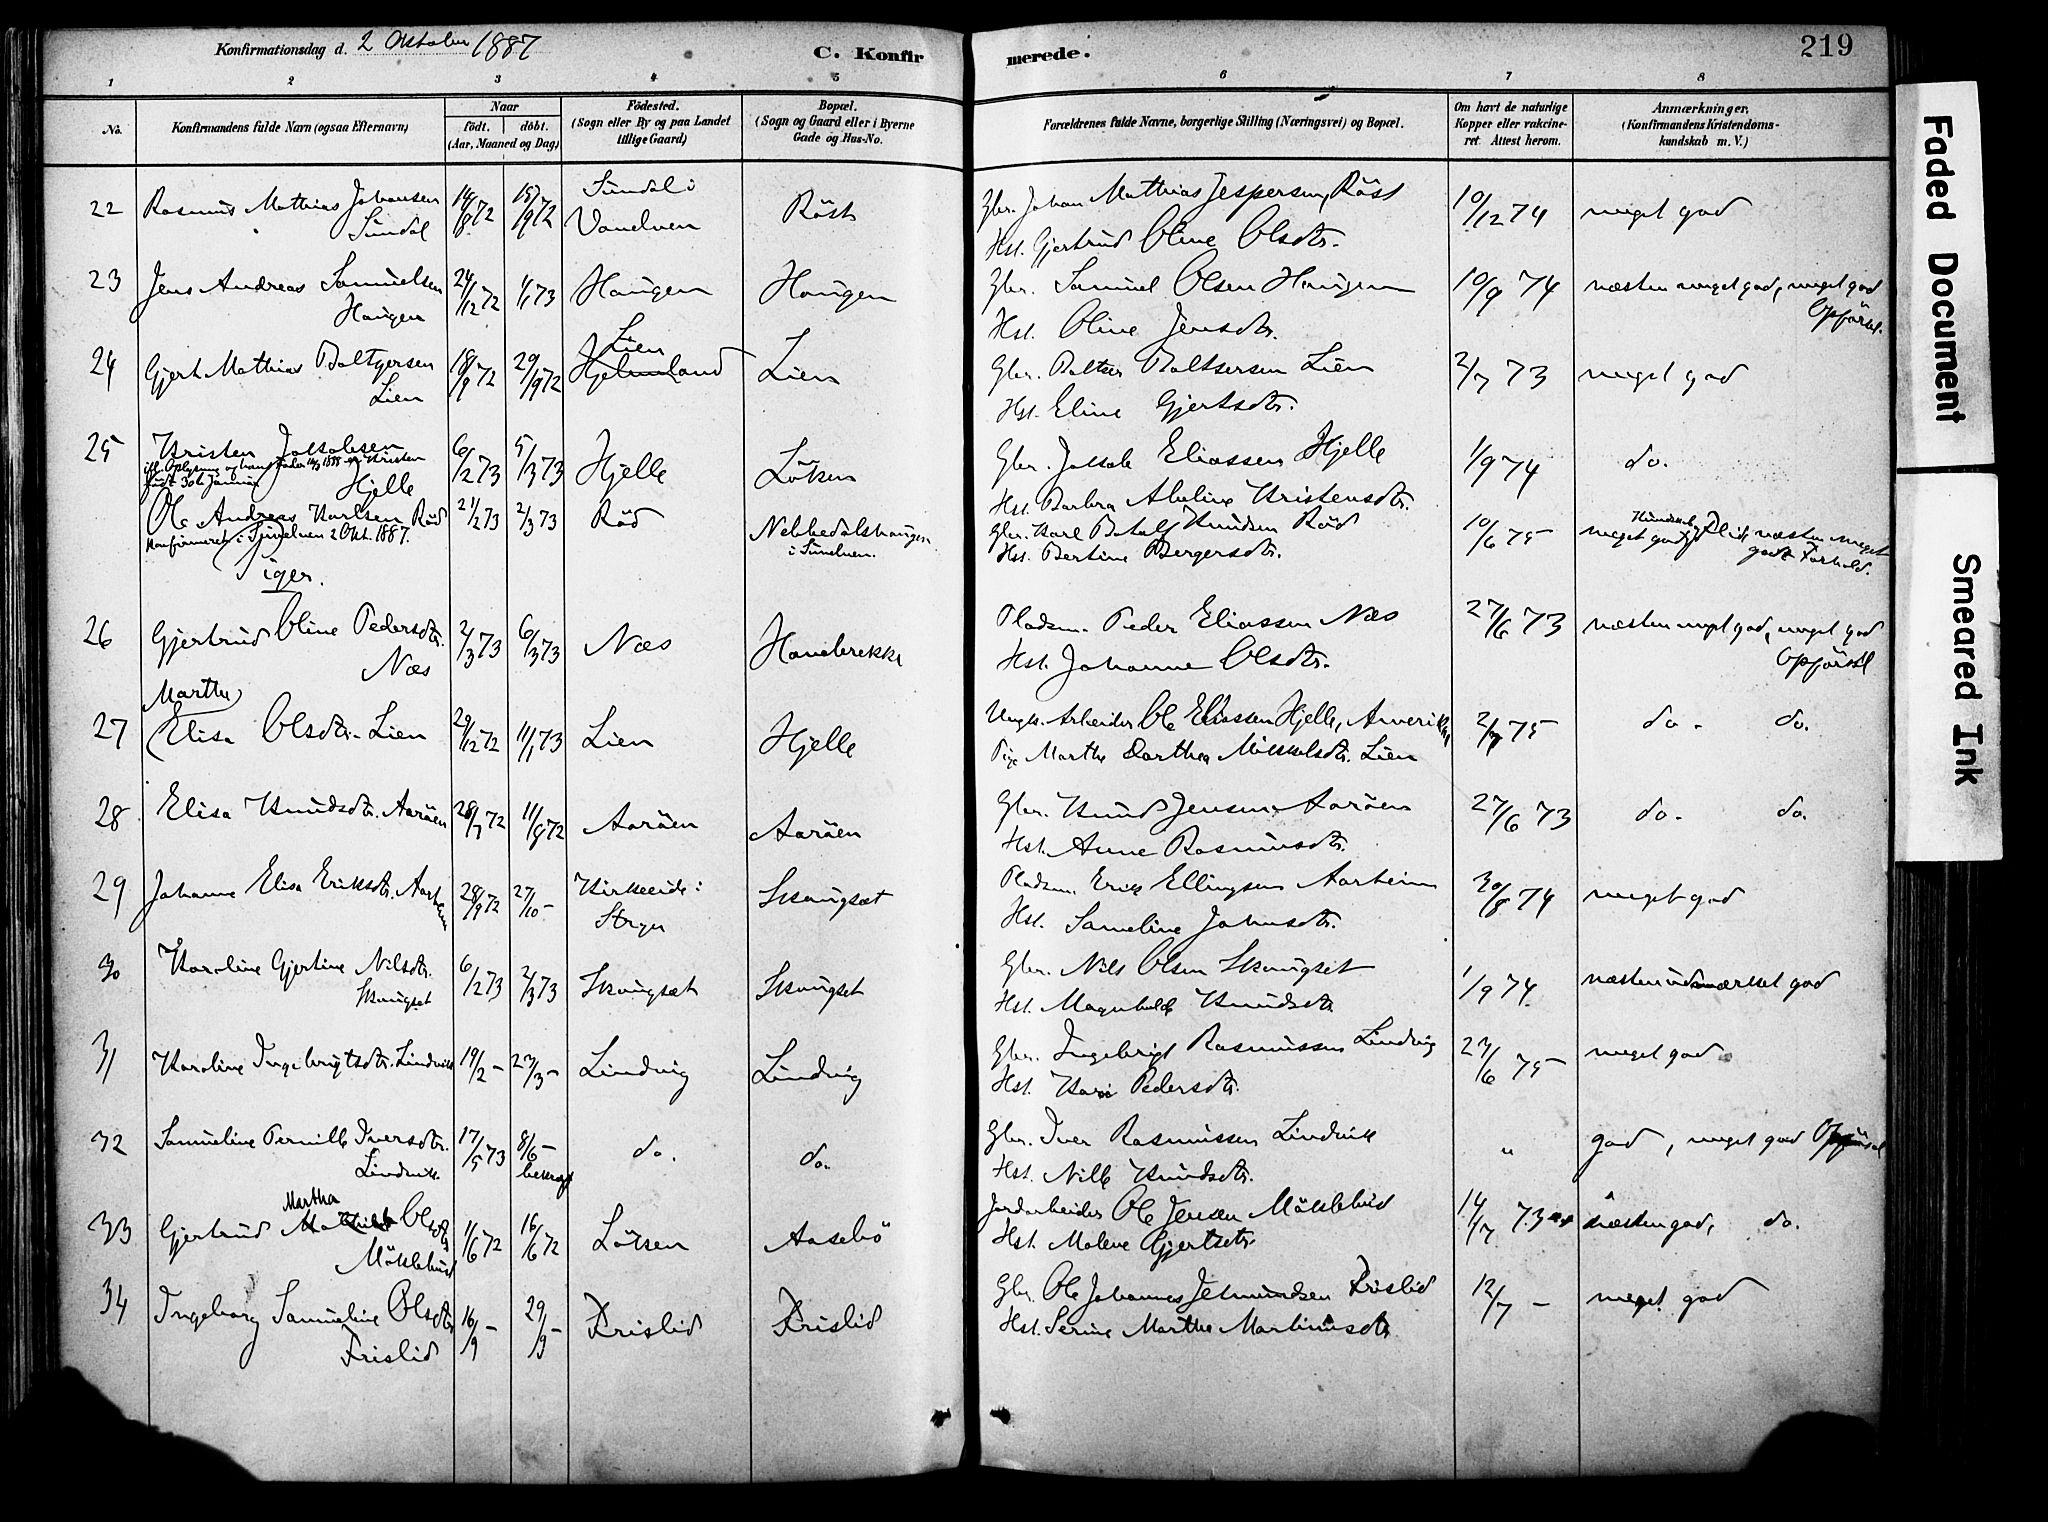 Konfirmationsdag d. 2 Oktober 1887
C. Konfirmerede.
219
1 2 3 4 5 6 7 8
No.
Konfirmandens fulde Navn (ogsaa Efternavn)
Naar
födt. döbt.
(Aar, Maaned og Dag)
Födested.
(Sogn eller By og paa Landet
tillige Gaard)
Bopæl.
(Sogn og Gaard eller i Byerne
Gade og Hus-No.
Forældrenes fulde Navne, borgerlige Stilling (Næringsvei) og Bopæl.
Om havt de naturlige
Kopper eller vakcine-
ret. Attest herom.
Anmærkninger.
(Konfirmandens Kristendoms-
kundskab m. V.)
22 Rasmus Mathias Johansen 14/8 72 15/9 72 Sundal i Röst Gbr. Johan Mathias Jespersen, Röst 10/12 74 meget god
Sundal Vanelven Hst. Gjertrud Oline Olsdtr.
23 Jens Andreas Samuelsen 24/12 72 1/1 73 Haugen Haugen Gbr. Samuel Olsen Haugen 10/9 74 næsten meget god, meget god
Haugen Hst. Oline Jensdtr. Opförsel.
24 Gjert Mathias Baltzersen 18/9 72 29/9 72 Lien Lien Gbr. Baltser Baltsersen Lien 2/7 73 meget god
Lien Hjelmeland Hst. Eline Gjertsdtr.
25 Kristen Jakobsen 6/2 73 5/3 73 Hjelle Löken Gbr. Jakob Eliassen Hjelle 1/9 74 do.
Hjelle Hst. Barbra Abeline Kristensdtr.
Ole Andreas Karlsen Röd 21/2 73 2/3 73 Röd Nebbedalshaugen Gbr. Karl Knudsen Röd 10/6 75 meget god Kundskab, Flid, næsten meget
Konfirmeret i Sunelven 2 Okt. 1887. i Sunelven. Hst. Bertine Bergersdtr. godt Forhold.
Piger.
26 Gjertrud Oline Pedersdtr. 2/3 73 6/3 73 Næs Hanebrekke Pladsm. Peder Eliassen Næs 27/6 73 næsten meget god, meget god
Næs Hst. Johanne Olsdtr. Opförsel
Marthe
27 Elisa Olsdtr. Lien 29/12 72 11/1 73 Lien Hjelle Ungk. Arbeider Ole Eliassen Hjelle, Amerika 2/7 75 do. do.
Pige Marthe Dorthea Mikkelsdtr. Lien
28 Elisa Knudsdtr. Aaröen 28/7 72 11/8 72 Aaröen Aaröen Gbr. Knud Jensen Aaröen 27/6 73 do. do.
Hst. Anne Rasmusdtr.
29 Johanne Elisa Eriksdtr. Aarheim 28/9 72 27/10 - Kirkeeide i Skaugsæt Pladsm. Erik Ellingsen Aarheim 30/8 74 meget god
Stryn Hst. Sameline Johnsdtr.
30 Karoline Gjertine Nilsdtr. 6/2 73 2/3 73 Skaugsæt Skaugset Gbr. Nils Olsen Skaugset 1/9 74 næsten udmærket god
Skaugset Hst. Magnhilde Knudsdtr.
31 Karoline Ingebrigtsdtr. Lindvik 19/2 - 23/3 - Lindvig Lindvig Gbr. Ingebrigt Rasmussen Lindvig 27/6 75 meget god
Hst. Kari Pedersdtr.
32 Samueline Pernille Iversdtr. 17/5 73 8/6 - do. do. Gbr. Iver Rasmussen Lindvik " god, meget god Opförsel
Lindvik. Hst. Nille Knudsdtr.
Martha
33 Gjertrud Mathilde Olsdtr. 1/6 72 16/6 72 Löken Aasebö Jordarbeider Ole Jensen Möklebust 14/7 73 næsten god, do.
Möklebust Hst. Malene Gjertsdtr.
34 Ingeborg Samueline Olsdtr. 16/9 - 29/9 - Frislid Frislid Gbr. Ole Johannes Jetmundsen Frislid 12/7 - meget god
Frislid Hst. Serine Marthe Martinusdtr
Faded Document
Smeared Ink